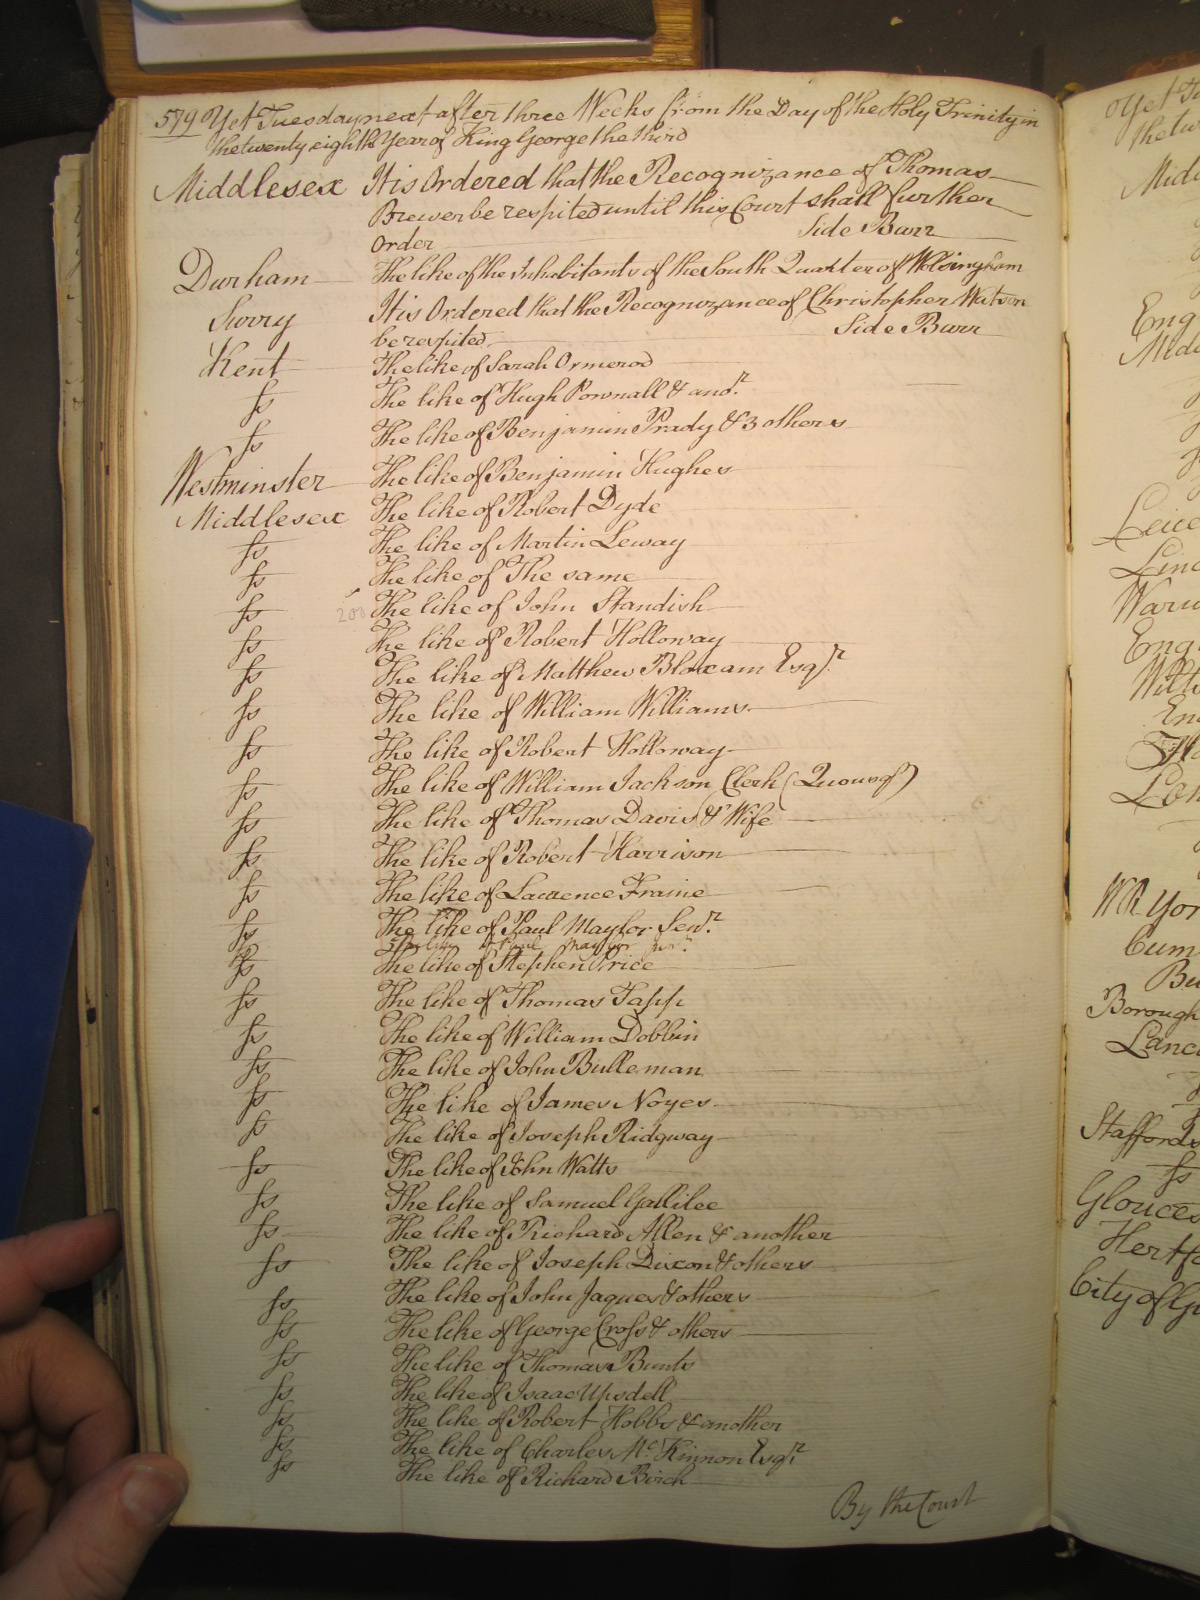 579 Yet Tuesday next after three Weeks from the Day of the Holy Trinity in
the twenty eighth Year of King George the third
Middlesex It is Ordered that the Recognizance of Thomas
Brewer be respited until this Court shall further
Order Side Barr
Durham The like of the Inhabitants of the South Quarter of Wolsingham
Surry It is Ordered that the Recognizance of Christopher Watson
be respited Side Barr
Kent The like of Sarah Ormerod
Ss The like of Hugh Pownall & anor.
Ss The like of Benjamin Prady & 3 others
Westminster The like of Benjamin Hughes
Middlesex The like of Robert Dyde
Ss The like of Martin Leway
Ss The like of The same
Ss The like of John Standish
Ss The like of Robert Holloway
Ss The like of Matthew Bloxam Esqr.
Ss The like of William Williams
Ss The like of Robert Holloway
Ss The like of William Jackson Clerk
Ss The like of Thomas Davis & Wife
Ss The like of Robert Harrison
Ss The like of Laurence Fraine
Ss The like of Paul Maylor Senr.
The like of Paul Maylor Junr.
Ss The like of Stephen Price
Ss The like of Thomas Tapp
Ss The like of William Dobbin
Ss The like of John Bulleman
Ss The like of James Noyes
Ss The like of Joseph Ridgway
Ss The like of John Watts
Ss The like of Samuel Gallilee
Ss The like of Richard Allen & another
Ss The like of Joseph Dixon & others
Ss The like of John Jaques & others
Ss The like of George Cross & others
Ss The like of Thomas Bunts
Ss The like of Isaac Upsdell
Ss The like of Robert Hobbs & another
Ss The like of Charles McKinnon Esqr.
Ss The like of Richard Birch
By the Court
Yet
the tw
Eng
Leice
Linc
Warw
Eng
Wilts
WR Yor
Cum
Borough
Lanc
Staffords
Ss
Glouces
Hertf
City of Gl